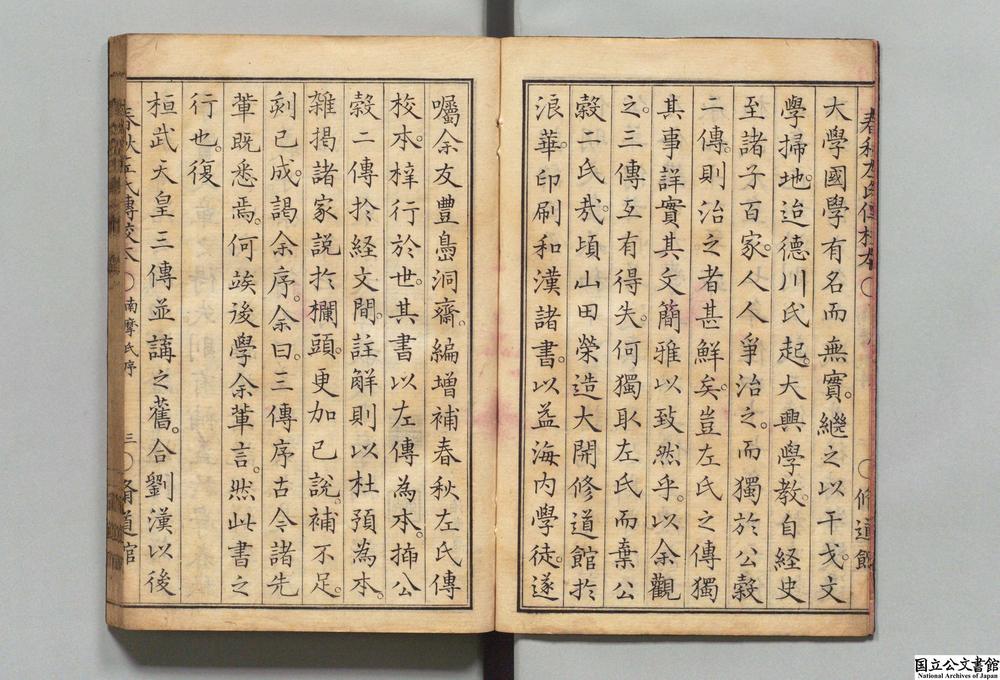 春秋左氏傳校本
〇
修道館
大學國學有名而無實。繼之以干戈。文
學掃地。迨德川氏起。大興學教。自経史
至諸子百家。人人爭治之。而獨於公穀
二傳。則治之者甚鮮矣。豈左氏之傳獨
其事詳實其文簡雅以致然乎。以余觀
之。三傳互有得失。何獨取左氏而棄公
穀二氏哉。頃山田榮造大開修道館於
浪華。印刷和漢諸書。以益海内學徒。遂
囑余友豊嶌洞齋。編增補春秋左氏傳
校本。梓行於世。其書以左傳為本。揷公
穀二傳於経文間。註觧則以杜預為本。
雜揭諸家説於欄頭。更加已説。補不足。
刻已成。謁余序。余曰。三傳序古今諸先
輩既悉焉。何竢後學余輩言。然此書之
行也。復
桓武天皇三傳並講之舊。合劉漢以後
春秋左氏傳校本
〇
南摩氏序
三
〇
脩道館
国立公文書館
National Archives of Japan